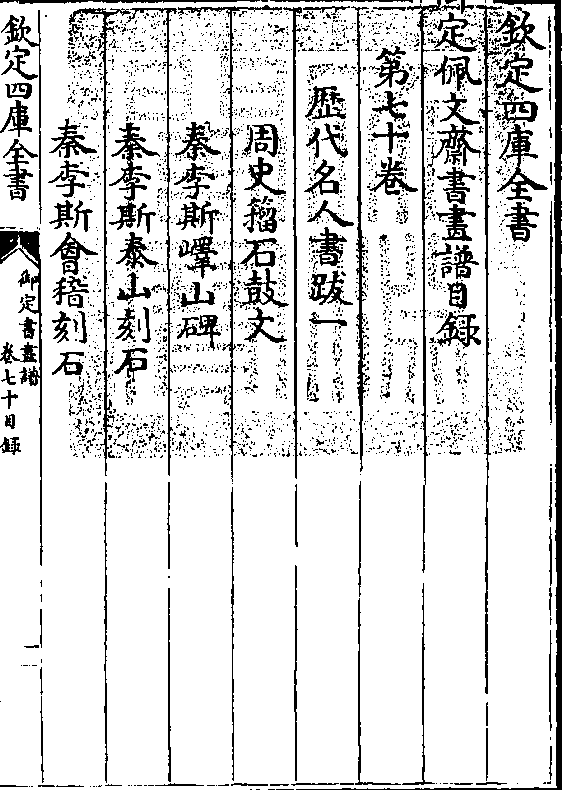 欽定四庫全書
定佩文齋書畫譜目録
第七十卷
歴代名人書跋一
周史籀石鼓文
秦李斯嶧山碑
秦李斯泰山刻石
秦李斯會稽刻石
欽定四庫全書
御定書畫譜
卷七十目録
一